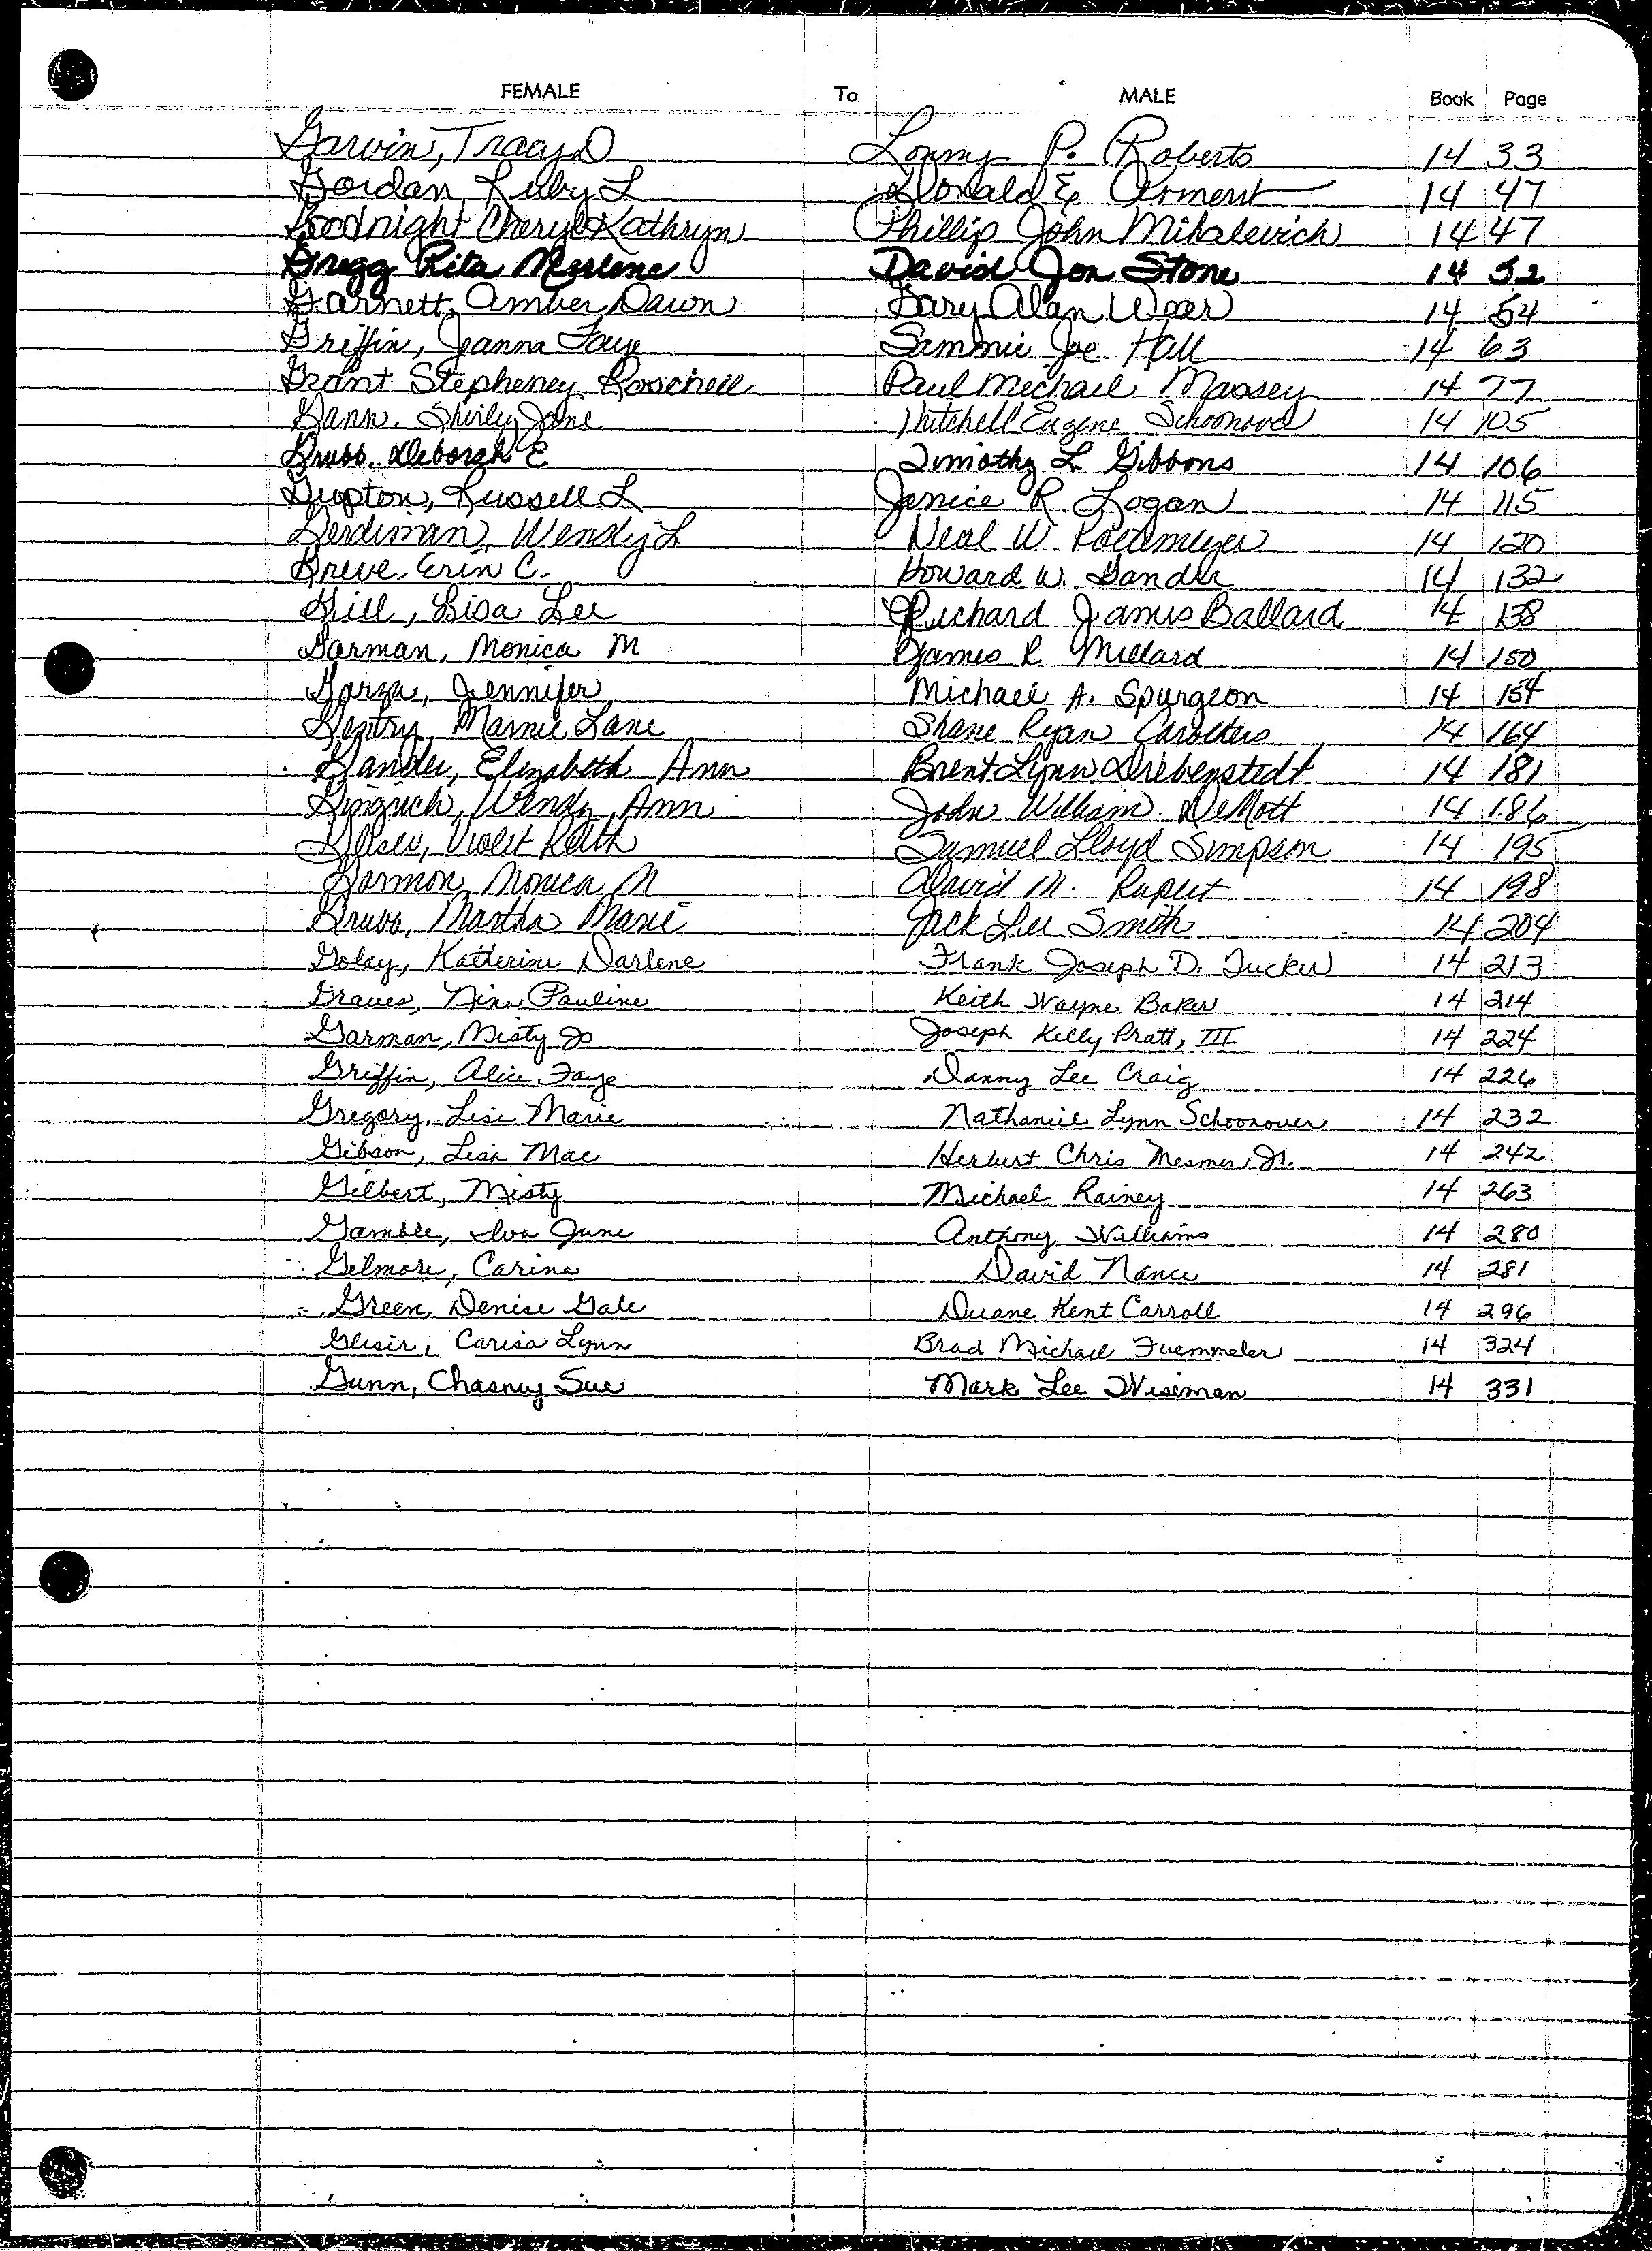 FEMALE To MALE Book Page
Garvin, Tracy D Lonny P. Roberts 14 33
Gordan, Ruby L Donald E Orment 14 47
Goodnight Cheryl Kathryn Phillip John Mihalevich 14 47
Gregg Rita Marlene David Jon Stone 14 52
Garnett, Amber Dawn Gary Alan Wear 14 54
Griffin, Jeanna Faye Sammie Joe Hall 14 63
Grant Stepheney Roschell Paul Michael Massey 14 77
Gann, Shirley Jane Mitchell Eugene Schoonover 14 105
Grubb, Deborah E Timothy L Gibbons 14 106
Gupton, Russell L Janice R Logan 14 115
Wendy L Neal W 14 120
Greve, Erin C. Howard W. Gander 14 132
Gill, Lisa Lee Richard James Ballard 14 138
Garman, Monica M James R Millard 14 150
Garza, Jennifer Michael A. Spurgeon 14 154
Gentry, Marnie Lane Shane Ryan Carothers 14 164
Gander, Elizabeth Ann Brent Lynn 14 181
Gingrich, Wendy Ann John William DeMott 14 186
Violet Ruth Samuel Lloyd Simpson 14 195
Garmon, Monica M David M. Rupert 14 198
Grubb, Martha Marie Jack Lee Smith 14 204
Golay, Katherine Darlene Frank Joseph D. Tucker 14 213
Graves, Nina Pauline Keith Wayne Baker 14 214
Garman, Misty Jo Joseph Kelly Pratt, III 14 224
Griffin, Alice Faye Danny Lee Craig 14 226
Gregory, Lisa Marie Nathaniel Lynn Schoonover 14 232
Gibson, Lisa Mae Herbert Chris Mesmer, Jr. 14 242
Gilbert, Misty Michael Rainey 14 263
Gamble, Iva June Anthony Williams 14 280
Gilmore, Carina David Nance 14 281
Green, Denise Gale Duane Kent Carroll 14 296
Glisir, Carisa Lynn Brad Michael Fuemmeler 14 324
Gunn, Chasney Sue Mark Lee Wiseman 14 331